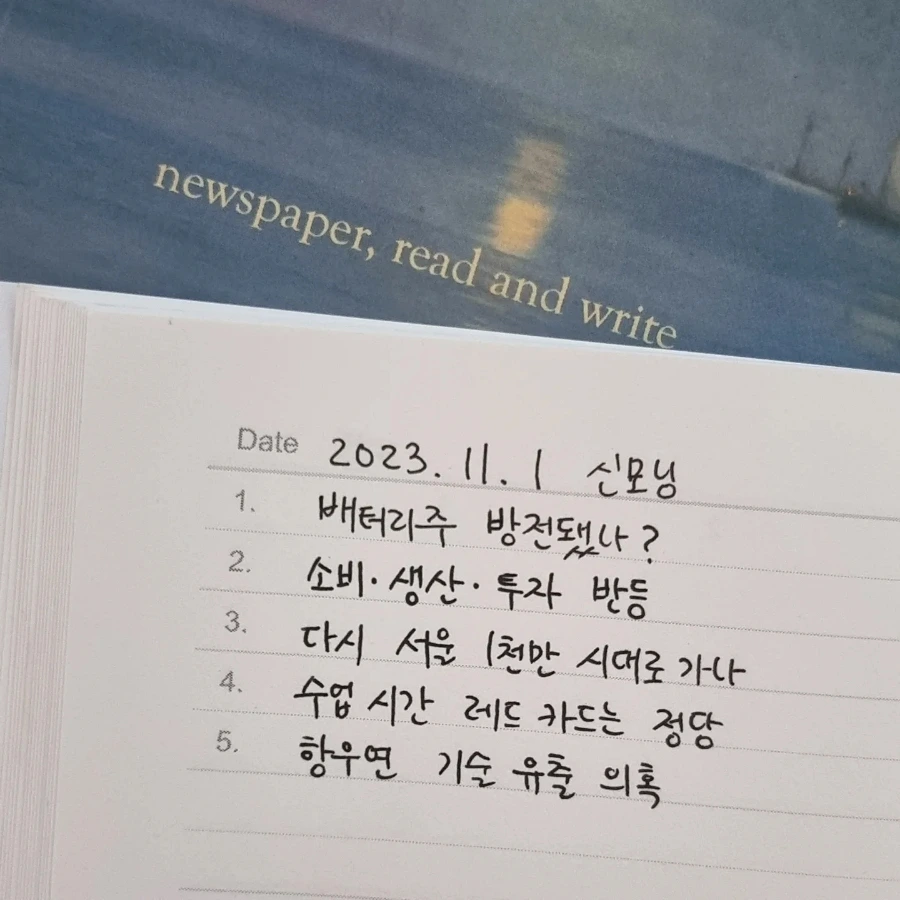 newspaper, read and write
Date 2023. 11. 1 신모닝
1. 배터리주 방전됐나?
2. 소비·생산·투자 반등
3. 다시 서울 1천만 시대로 가나
4. 수업 시간 레드 카드는 정당
5. 항우연 기술 유출 의혹